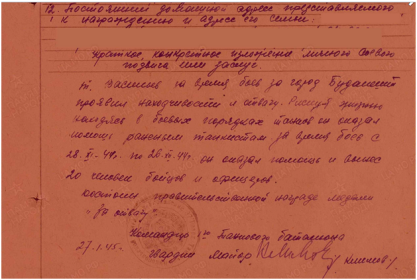 12. Постоянный домашний адрес представляемого
к награждению и адрес его семьи:
Краткое, конкретное изложение личного боевого
подвига или заслуг
за время боев за город Будапешт
проявил находчивость и отвагу. Рискуя жизнью
находясь в боевых порядках танков он оказал
помощь раненым танкистам за время боев с
по он оказал помощь и вынес
20 человек бойцов и офицеров.
Достоин правительственной награды медали
"За отвагу"
Командир Танкового батальона
27-1-45. гвардии майор